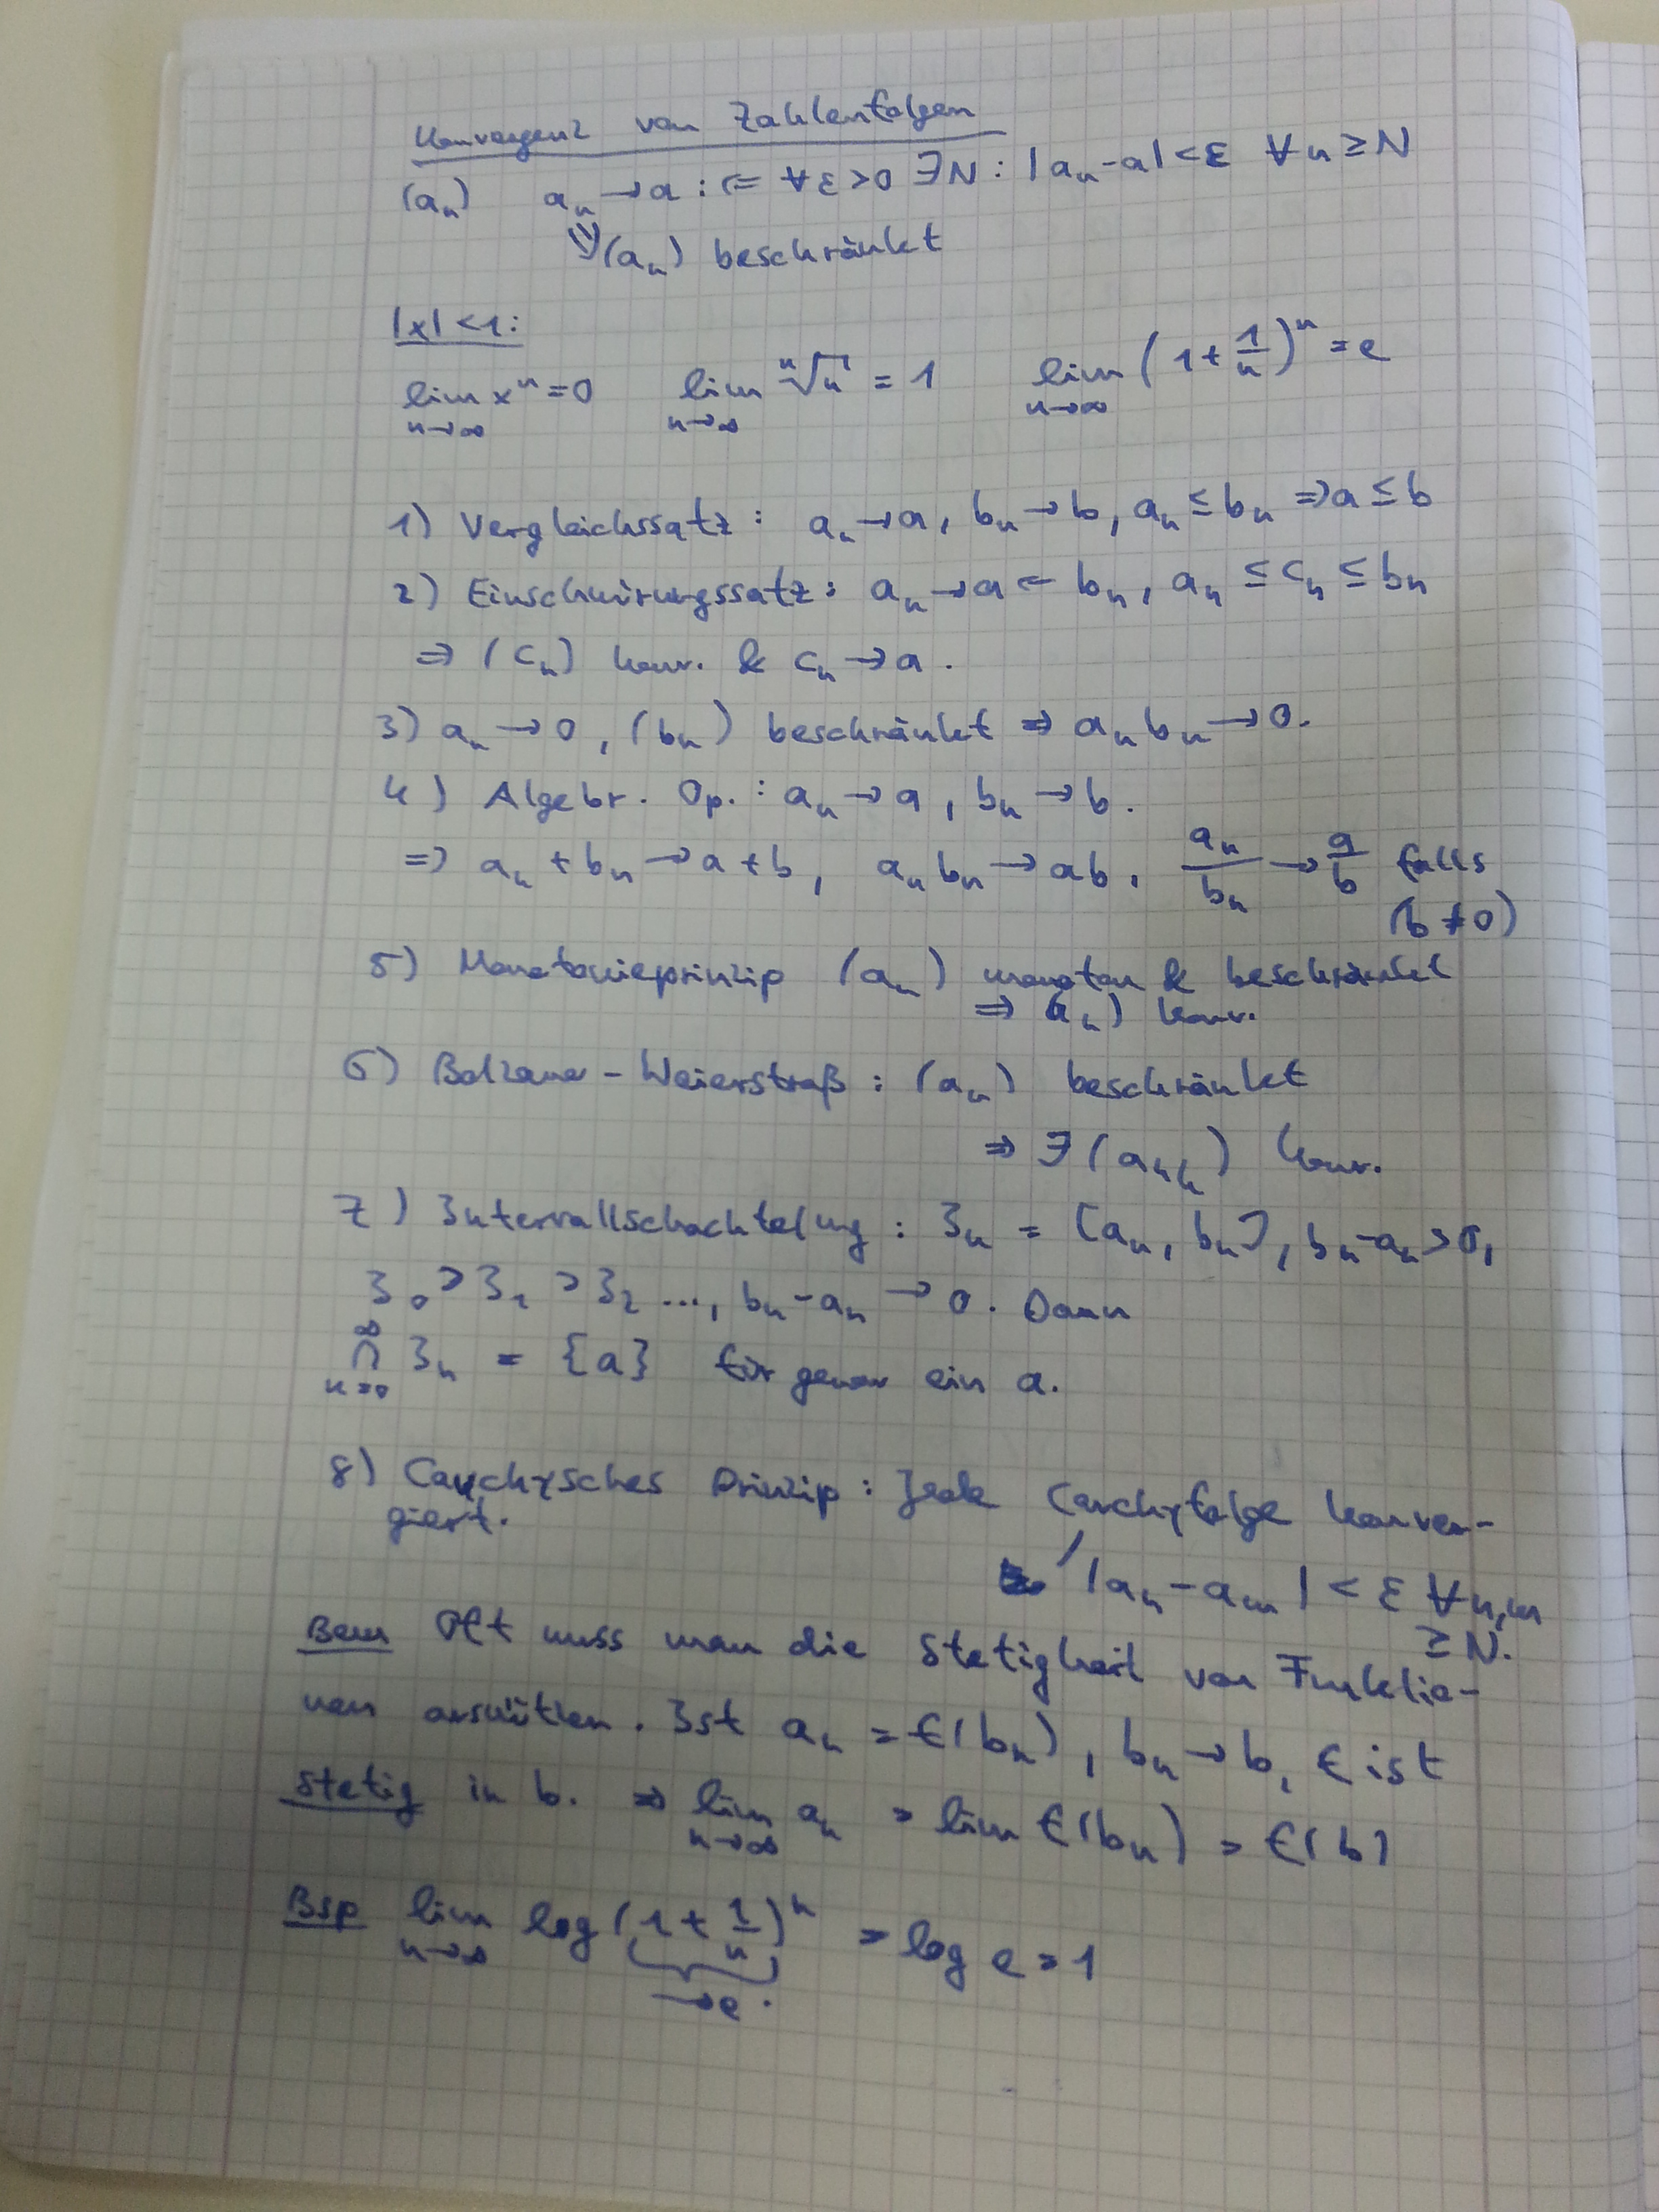 Konvergenz von Zahlenfolgen
(aₙ) aₙ → a :⇔ ∀ε>0 ∃N: |aₙ-a|<ε ∀n≥N
⇓ (aₙ) beschränkt
|x|<1:
lim xⁿ=0 lim ⁿ√n = 1 lim (1+1/n)ⁿ = e
n→∞ n→∞ n→∞
1) Vergleichssatz: aₙ→a, bₙ→b, aₙ≤bₙ ⇒ a≤b
2) Einschnürungssatz: aₙ→a ← bₙ, aₙ ≤ cₙ ≤ bₙ
⇒ (cₙ) konv. & cₙ→a.
3) aₙ→0, (bₙ) beschränkt ⇒ aₙbₙ→0.
4) Algebr. Op.: aₙ→a, bₙ→b.
⇒ aₙ+bₙ→a+b, aₙbₙ→ab, aₙ/bₙ → a/b falls
(b≠0)
5) Monotonieprinzip (aₙ) monoton & beschränkt
⇒ (aₙ) konv.
6) Bolzano-Weierstraß: (aₙ) beschränkt
⇒ ∃(aₙₖ) konv.
7) Intervallschachtelung: Iₙ = [aₙ, bₙ], bₙ-aₙ>0,
I₀ ⊃ I₁ ⊃ I₂ ..., bₙ-aₙ → 0. Dann
∞
∩ Iₙ = {a} für genau ein a.
n=0
8) Cauchysches Prinzip: Jede Cauchyfolge konver-
giert.
|aₙ-aₘ| < ε ∀n,m
≥N.
Bem Oft muss man die Stetigkeit von Funktio-
nen ausnützen. Ist aₙ = f(bₙ), bₙ→b, f ist
stetig in b. ⇒ lim aₙ = lim f(bₙ) = f(b)
n→∞
Bsp lim log(1+1/n)ⁿ = log e = 1
n→∞
→e.